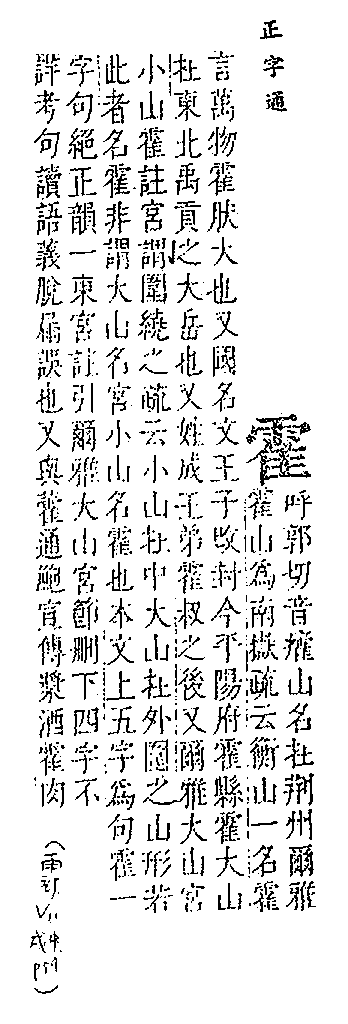 正字通
霍
呼郭切音㸌山名在荆州爾雅
霍山為南嶽疏云衡山一名霍
言萬物霍肰大也又國名文王子攺封今平陽府霍縣霍大山
在東北禹貢之大岳也又姓成王弟霍叔之後又爾雅大山宮
小山霍註宮謂圍繞之疏云小山在中大山在外圍之山形若
此者名霍非謂大山名宮小山名霍也本文上五字為句霍一
字句絶正韻一東宮註引爾雅大山宮節刪下四字不
詳考句讀語義脫漏誤也又與藿通鮑宣傳漿酒霍肉
(雨部
戌中
p59)